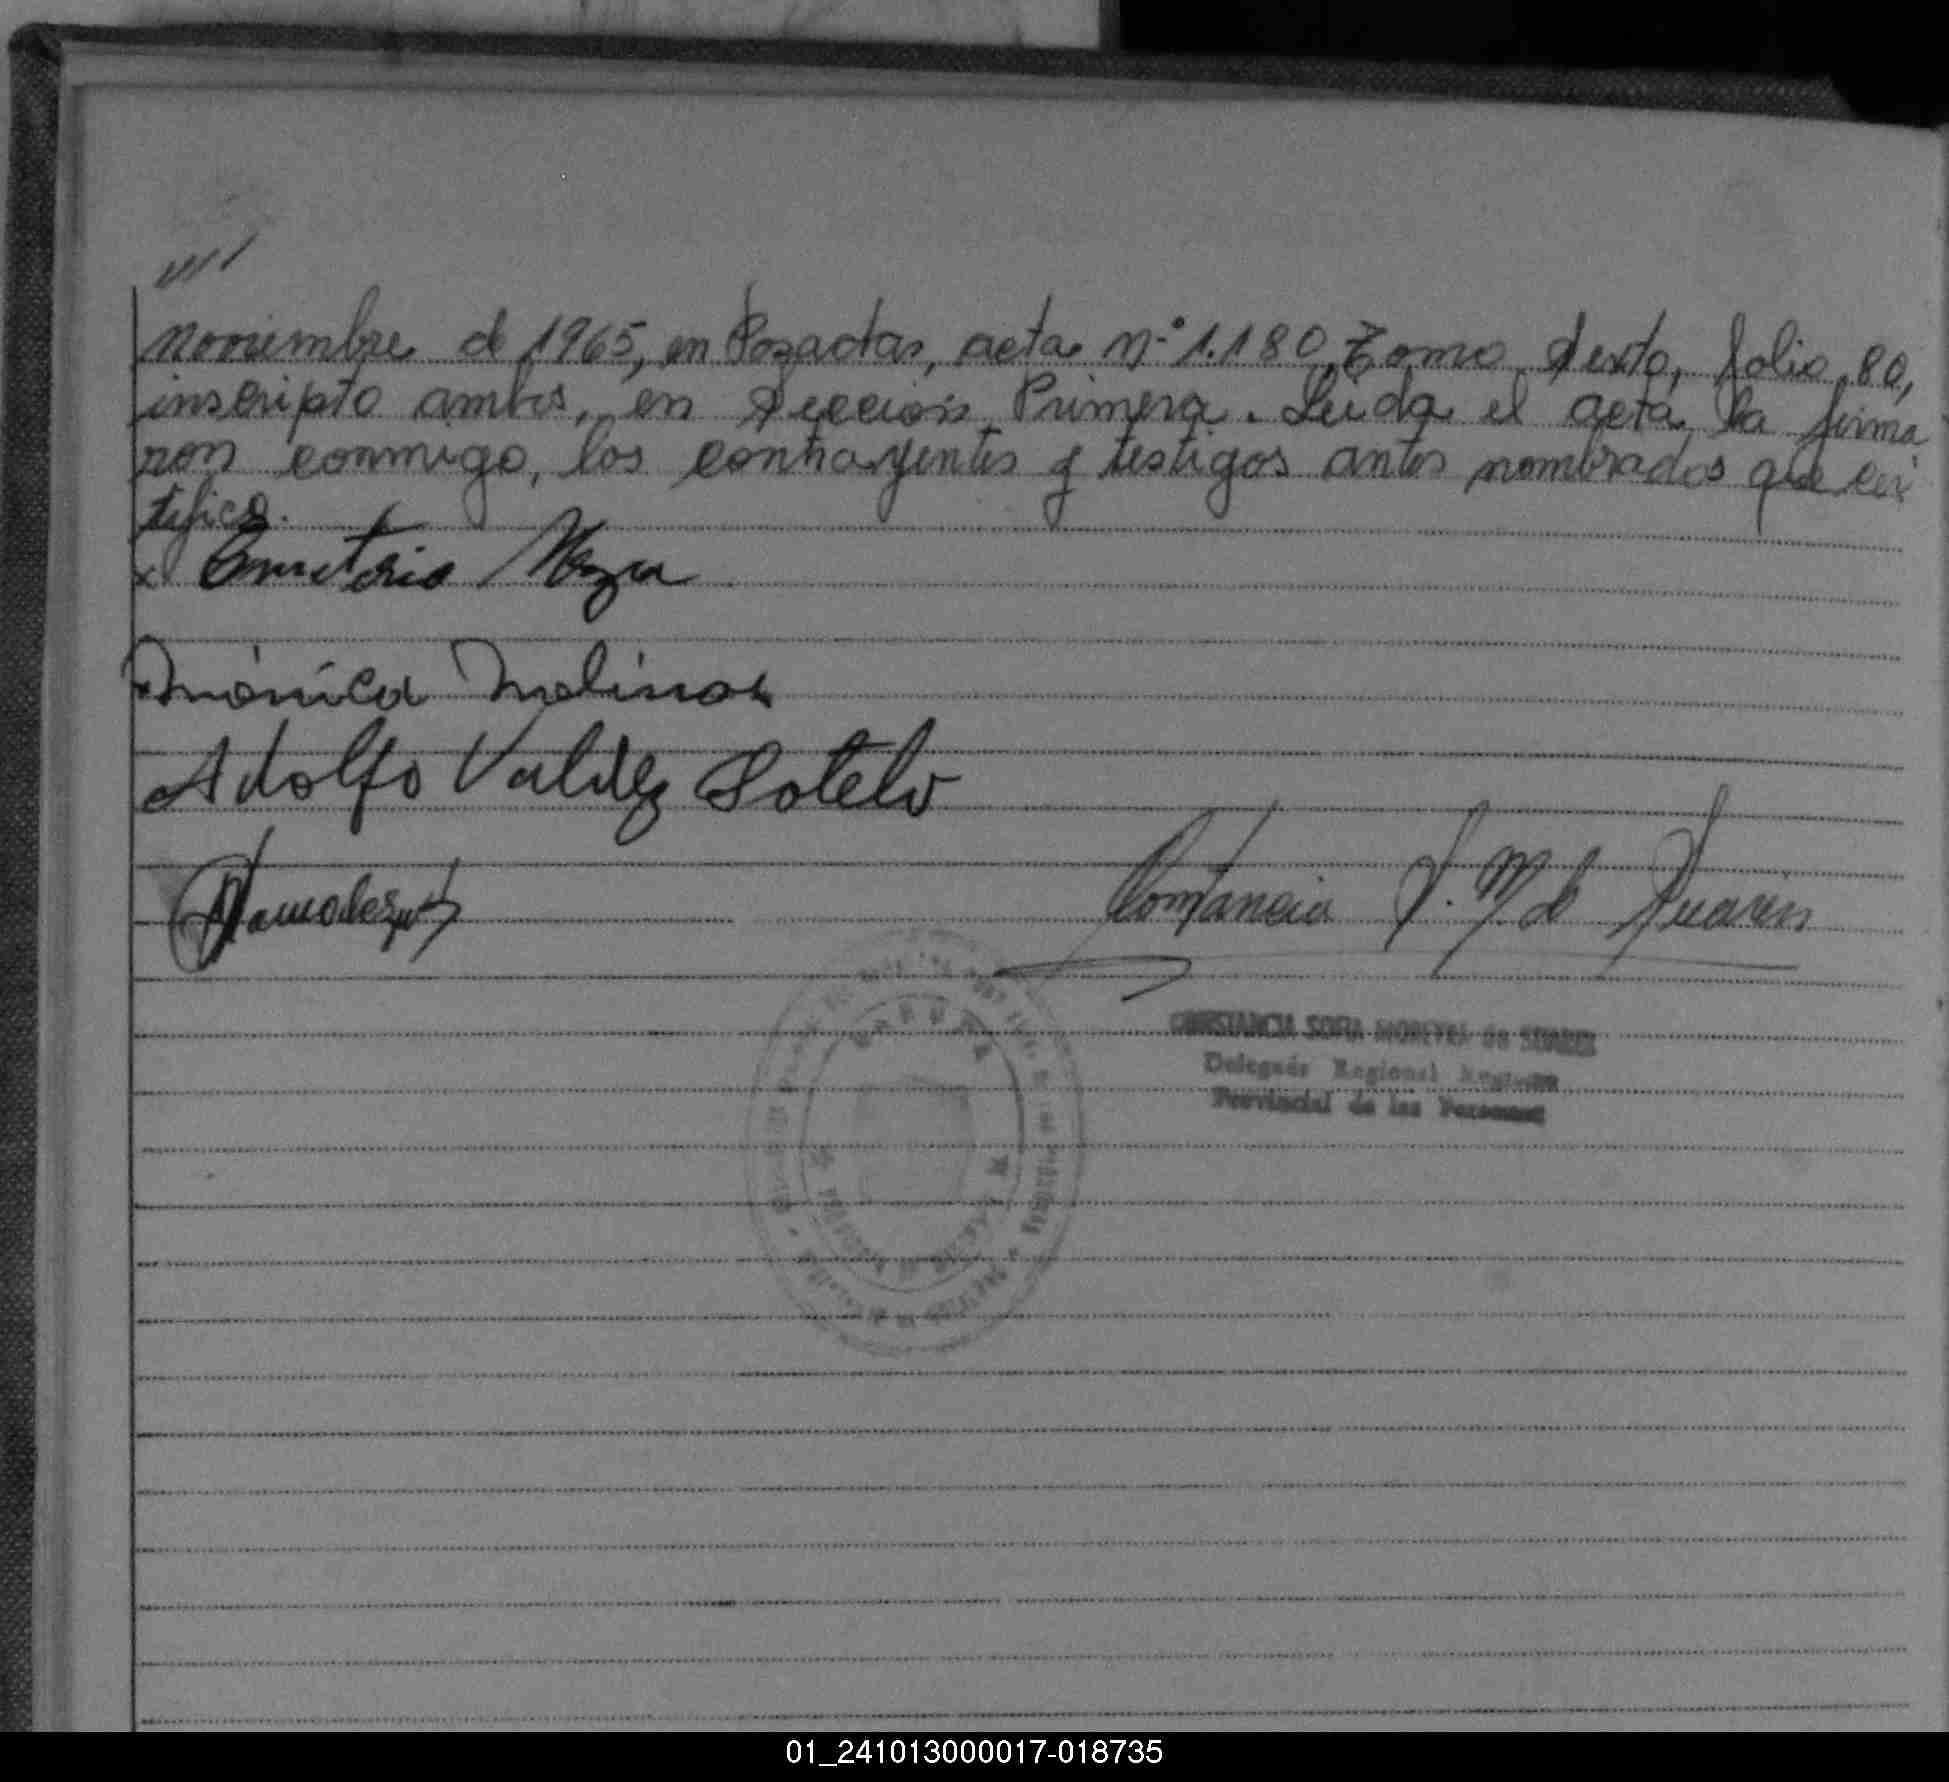 ////
noviembre de 1965, en Posadas, acta nº 1.180, Tomo Sexto, folio 80,
inscripto ambos, en Sección Primera. Leída el acta, la firma
ron conmigo, los contrayentes y testigos antes nombrados que cer
tifico.
x Emeterio
Mónica Molinas
Adolfo Valdez Sotelo
Constancia S. M. de Suarez
CONSTANCIA SOFIA MOREYRA DE SUAREZ
Delegado Regional Registro
Provincial de las Personas
01_241013000017-018735